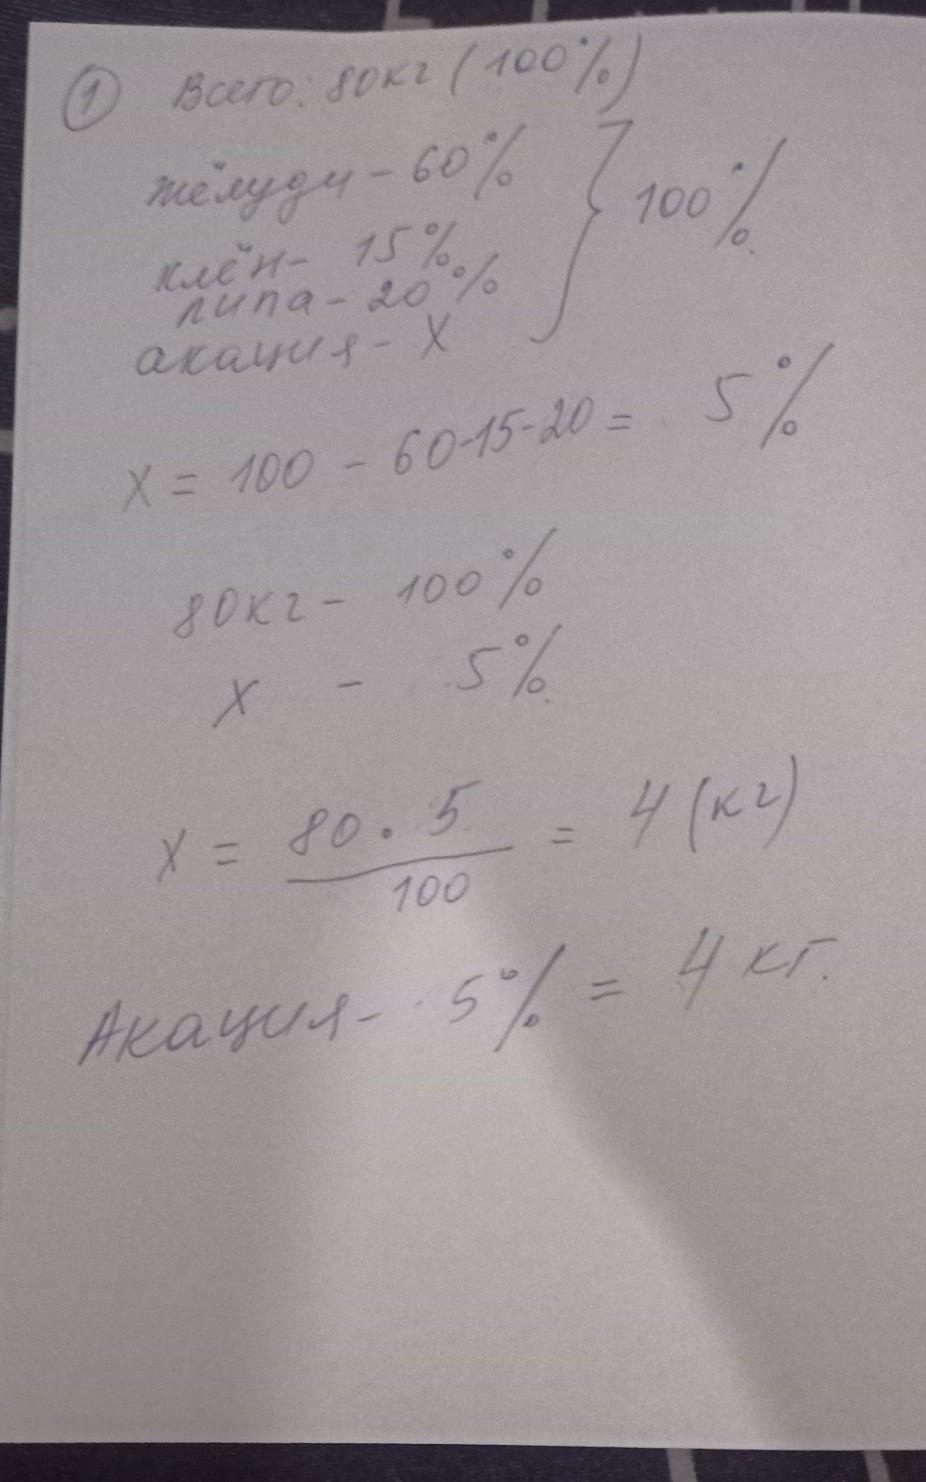 ① Всего: 80кг (100%)
жёлуди - 60%
клён - 15%
липа - 20%
акация - X
} 100%
X = 100 - 60-15-20 = 5%
80кг - 100%
X - 5%
X = 80 · 5 / 100 = 4 (кг)
Акация - 5% = 4 кг.